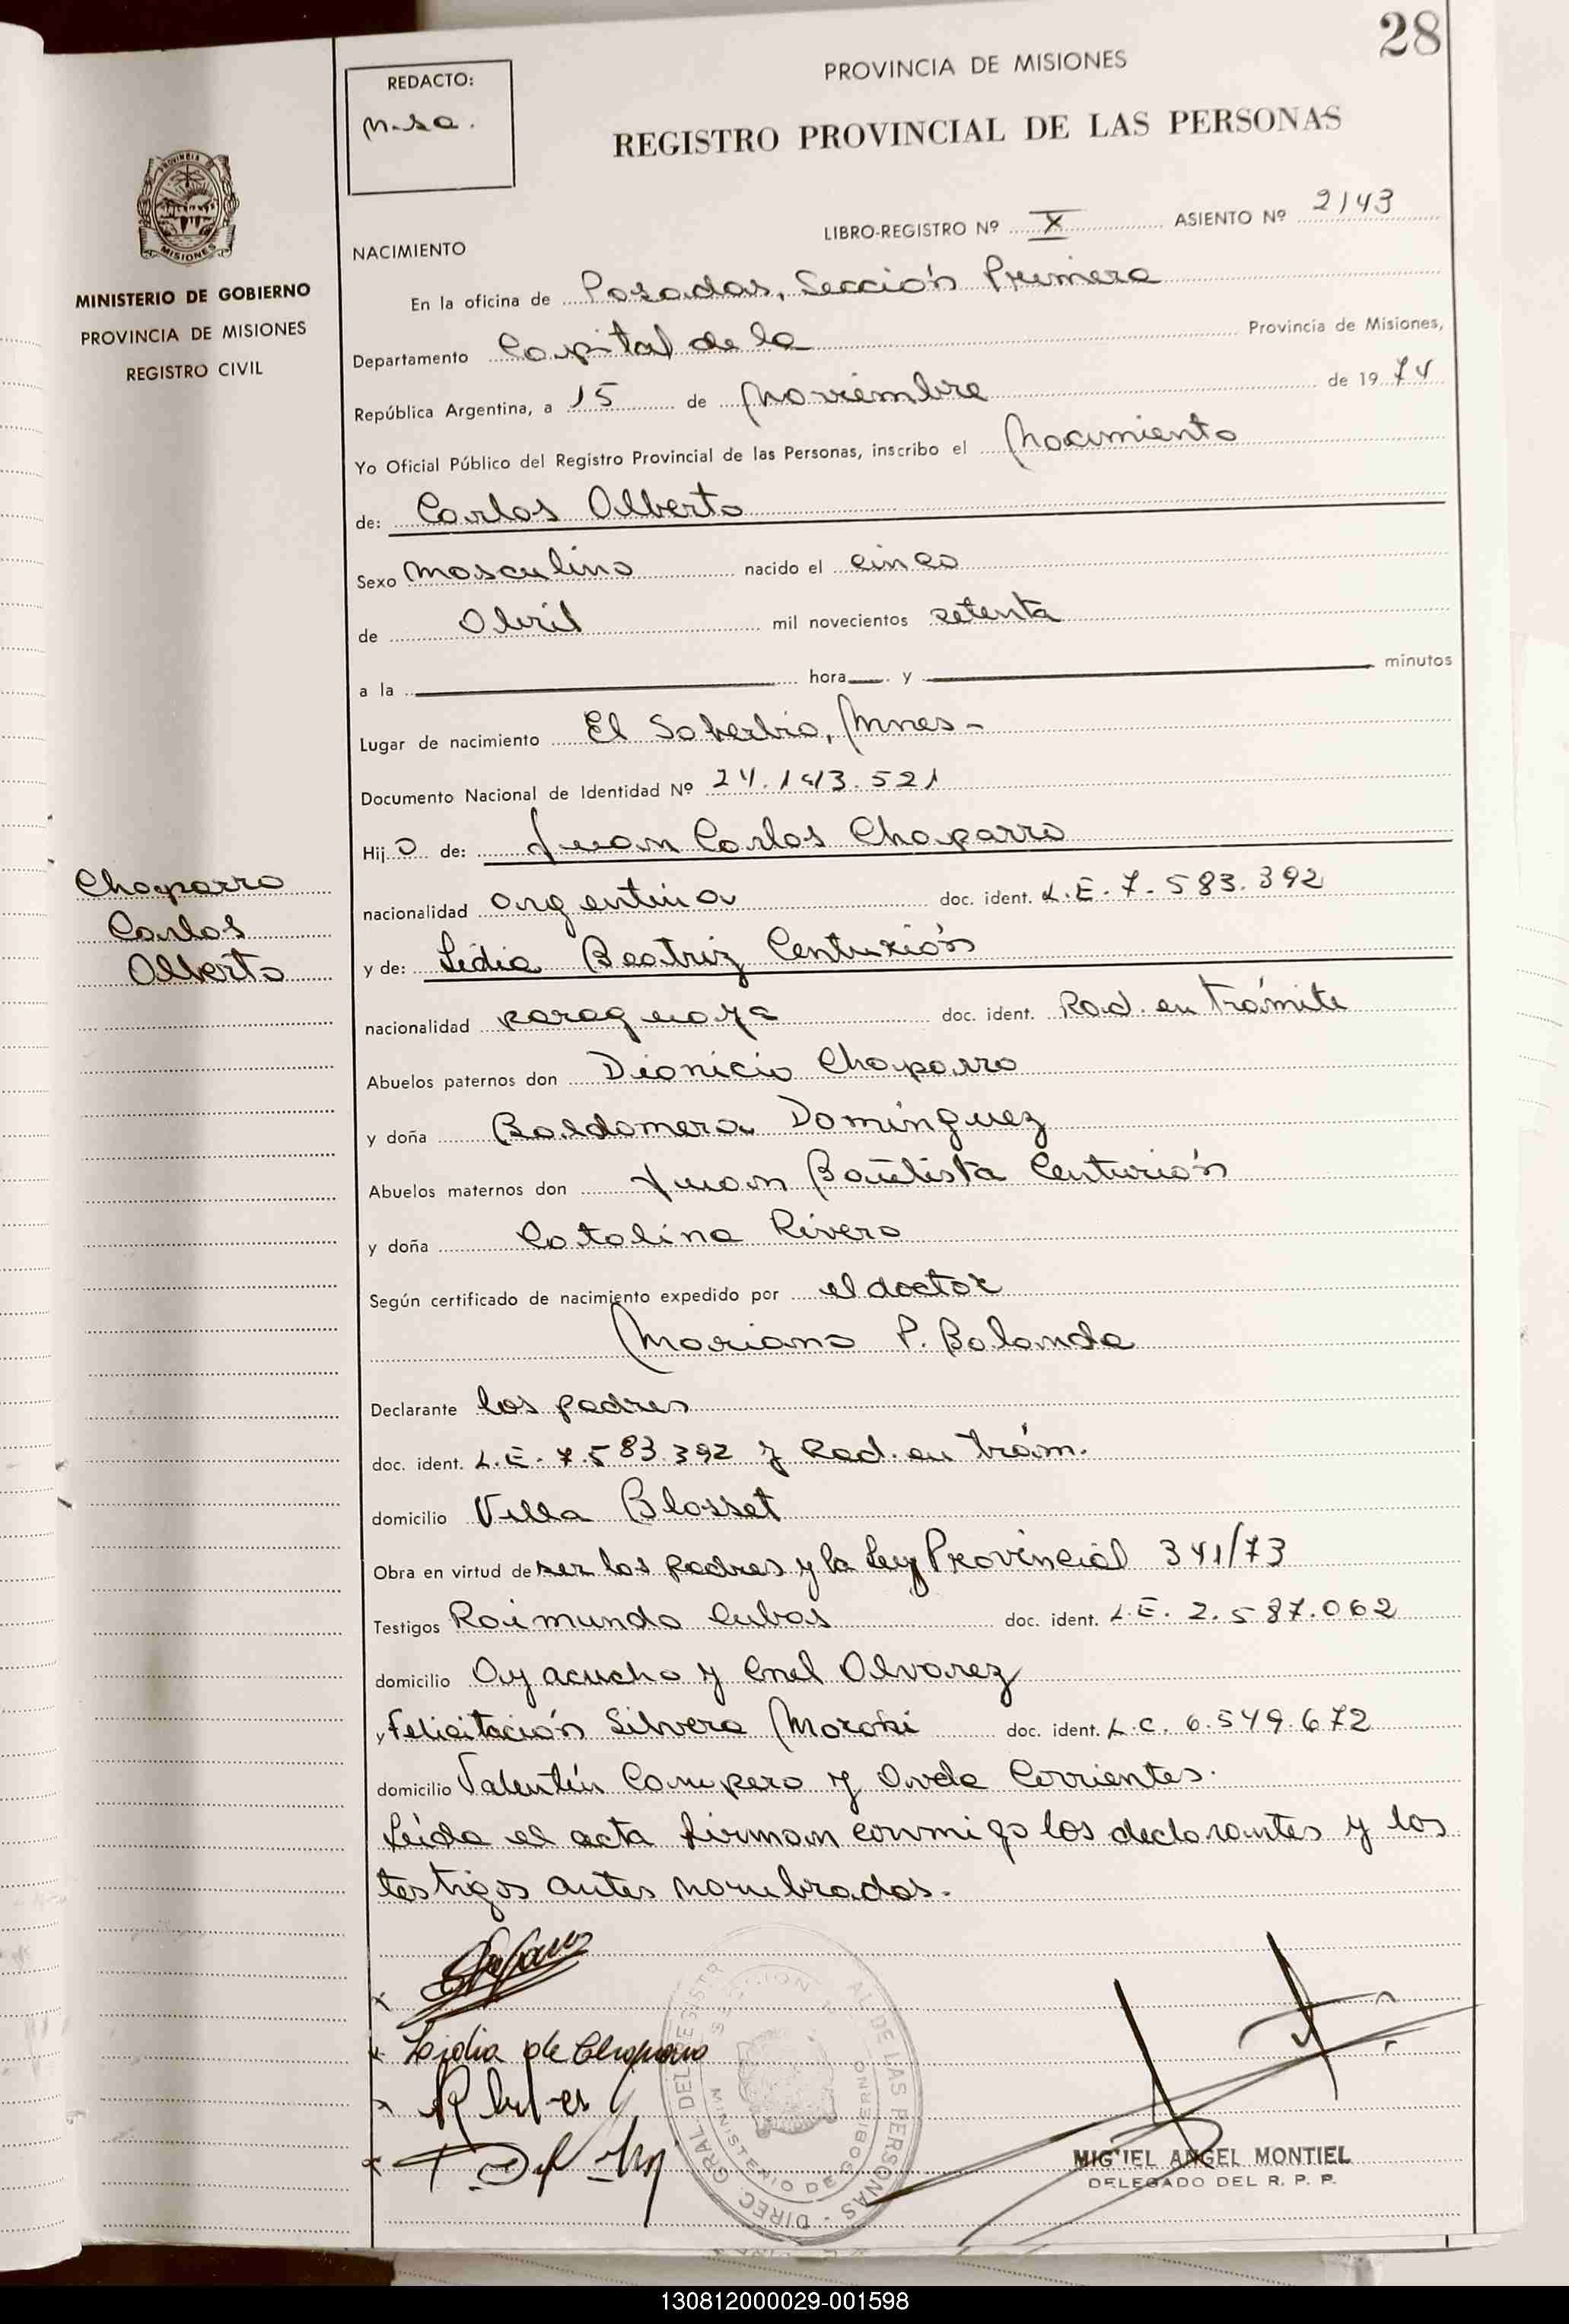 28
PROVINCIA DE MISIONES
REGISTRO PROVINCIAL DE LAS PERSONAS
REDACTO:
m.sa.
LIBRO-REGISTRO Nº X ASIENTO Nº 2143
PROVINCIA DE MISIONES
MINISTERIO DE GOBIERNO
PROVINCIA DE MISIONES
REGISTRO CIVIL
NACIMIENTO
En la oficina de Posadas, Sección Primera
Departamento Capital de la Provincia de Misiones,
República Argentina, a 15 de Noviembre de 1974
Yo Oficial Público del Registro Provincial de las Personas, inscribo el Nacimiento
de: Carlos Alberto
Sexo Masculino nacido el cinco
de Abril mil novecientos setenta
a la hora y minutos
Lugar de nacimiento El Soberbio, Mnes-
Documento Nacional de Identidad Nº 24.143.521
Hijo de: Juan Carlos Chaparro
nacionalidad argentina doc. ident. L.E. 7.583.392
y de: Lidia Beatriz Centurión
nacionalidad paraguaya doc. ident. Rad. en trámite
Abuelos paternos don Dionicio Chaparro
y doña Baldomera Domínguez
Abuelos maternos don Juan Bautista Centurión
y doña Catalina Rivero
Según certificado de nacimiento expedido por el doctor
Mariano P. Balanda
Declarante los padres
doc. ident. L.E. 7.583.392 y Rad. en trám.
domicilio Villa Blosset
Obra en virtud de ser los padres y la Ley Provincial 341/73
Testigos Raimundo Cubas doc. ident. L.E. 2.587.062
domicilio Ayacucho y Cnel Alvarez
y Felicitación Silvera doc. ident. L.C. 6.549.672
domicilio Valentín Campero y Avda Corrientes.
Leída el acta firman conmigo los declarantes y los
testigos antes nombrados.
Chaparro
Carlos
Alberto
Lidia de Chaparro
DIREC. GRAL. DEL REGISTR AL DE LAS PERSONAS
SECCION
MINISTERIO DE GOBIERNO
MIGUEL ANGEL MONTIEL
DELEGADO DEL R. P. P.
130812000029-001598